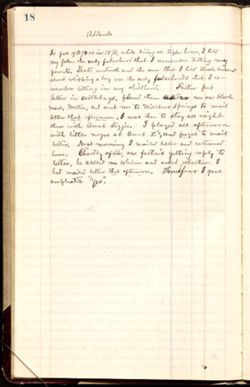 18
Addenda
In fall of 1870 or 1871, while living at Tyler home, I told
my father the only falsehood that I remember telling my
parents. That outside and the ones that I told
about whipping a boy are the only falsehoods that I re-
member telling in my childhood. Father put
letter in saddlebags, placed them me on black
mare, Mollie, and sent me to Springs to mail
letter that afternoon. I was then to stay all night
there with Aunt Lizzie. I played all afternoon
with little negro at Aunt L's, and forgot to mail
letter. Next morning I mailed letter and returned
home. Shortly after, on father's getting reply to
letter, he called me to him and asked whether I
had mailed letter that afternoon. I gave
emphatic "Yes".